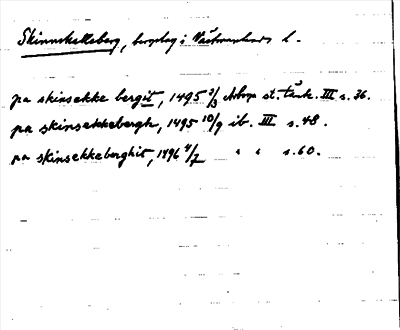 Skinnskatteberg, bergslag i Västmanlands l.
pa skinsekke bergit, 1495 2/3 Arboga st. tänk. III s. 36.
pa skinsekkebergh, 1495 10/9 ib. III s. 48.
pa skinsekkeberghit, 1496 4/7 " " s. 60.